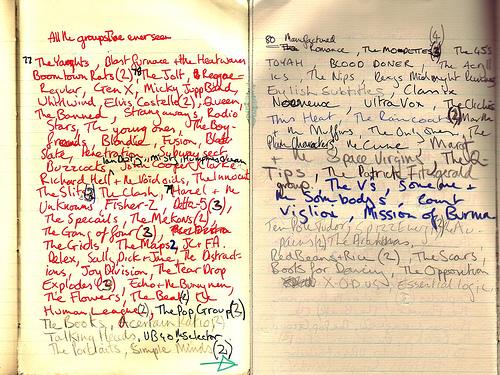 All the groups I've ever seen
77 The Yachts, Blast Furnace + the Heatwaves
Boomtown Rats (2) 78 The Jolt, Reggae
Regular, Gen X, Micky Jupp Band,
Whirlwind, Elvis Costello (2), Queen,
The Banned, Strangeways, Radio
Stars, The young ones, The Boy-
friends, Blondie, Fusion, Black
Slate, Penetration, Subway sect
Buzzcocks, John Cooper Clarke
Richard Hell + the Voidoids, The Innocents
The Slits (3) The Clash, 79 Hazel + the
Unknowns, Fisher-Z, Delta-5 (3),
The Specials, The Mekons (2),
The Gang of four (3),
The Grids, The Maps 2, JC + FA
Delex, Sally, Dick + Jane, The Distract-
ions, Joy Division, The Tear Drop
Explodes (3), Echo + the Bunnymen,
The Flowers, The Beat (2) The
Human League (2), The Pop Group (2)
The Books, A certain Ratio (2)
Talking Heads, UB40 the Selecter
The Portraits, Simple Minds (2)
(4)
80 Manufactured
Romance, The Modettes (3) The 45s
TOYAH BLOOD DONOR, The Aeri
ics, The Nips, Dexys Midnight Runners
English Subtitles, Classix
Nouveaux, Ultravox, The Cliches
This Heat, The Raincoats (2)
the Muffins, The Only ones, The
Plain Characters, The Cure, Margot
+ the Space Virgins, The Q-
Tips, The Patrick Fitzgerald
group, The Vs, Someone +
the Somebodys, Count
Viglione, Mission of Burma
Ten Pole Tudor,
Red Beans + Rice (2), The Scars,
Books for Dancing, The Opposition
X-O-DUS, Essential logic,